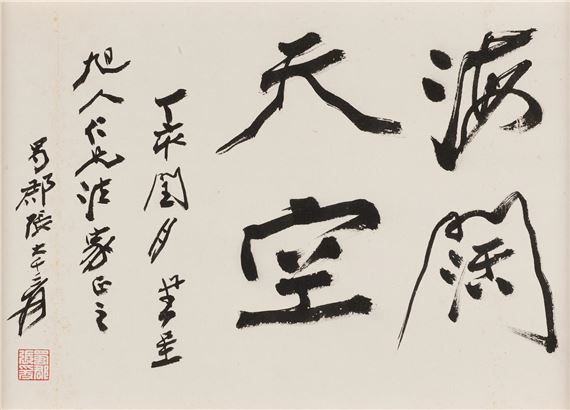 海闊
天空
丁亥閏月 呈
旭人仁兄法家正之
蜀郡張大千爰
蜀郡張爰